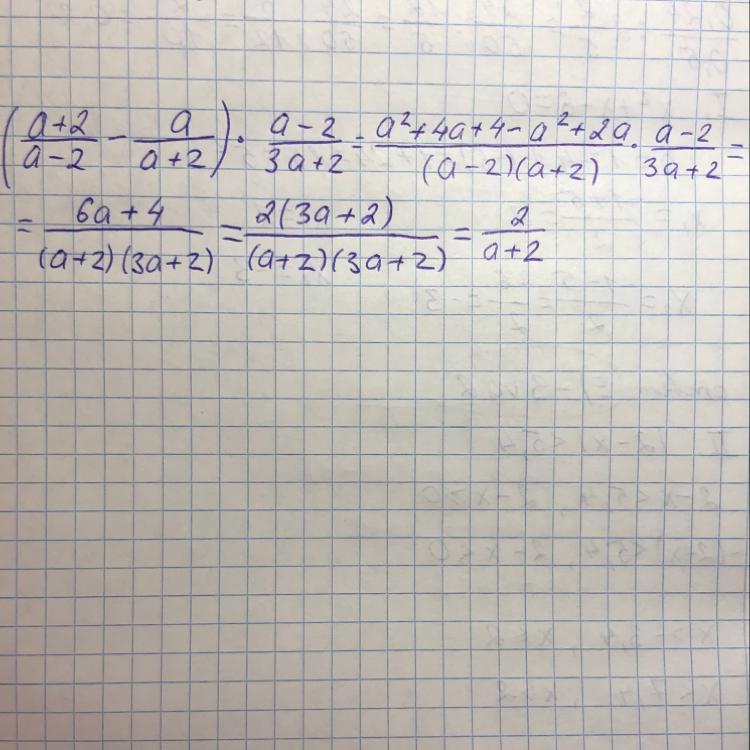 (a+2/a-2 - a/a+2) · a-2/3a+2 = a²+4a+4-a²+2a/(a-2)(a+2) · a-2/3a+2 =
= 6a+4/(a+2)(3a+2) = 2(3a+2)/(a+2)(3a+2) = 2/a+2